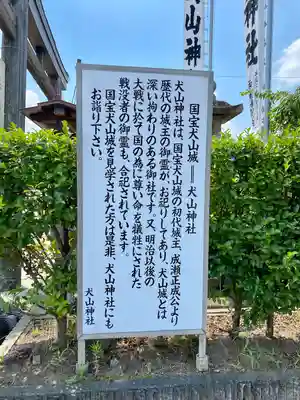 国宝犬山城――犬山神社
犬山神社は、国宝犬山城の初代城主、成瀬正成公より
歴代の城主の御霊が、お祀りしてあり、犬山城とは
深い拘わりのある御社です。又、明治以後の
大戦に於て国の為に尊い命を犠牲にされた
戦没者の御霊も、合祀されています。
国宝犬山城を見学された方は是非、犬山神社にも
お詣り下さい。
犬山神社
山神
神社